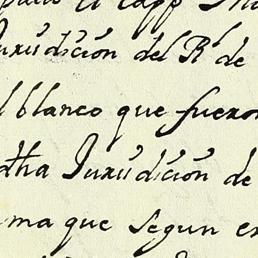 el Capp
Jurisdiccion del Rl de
l blanco que fueron
dha Jurisdiccion de
ma que segun es